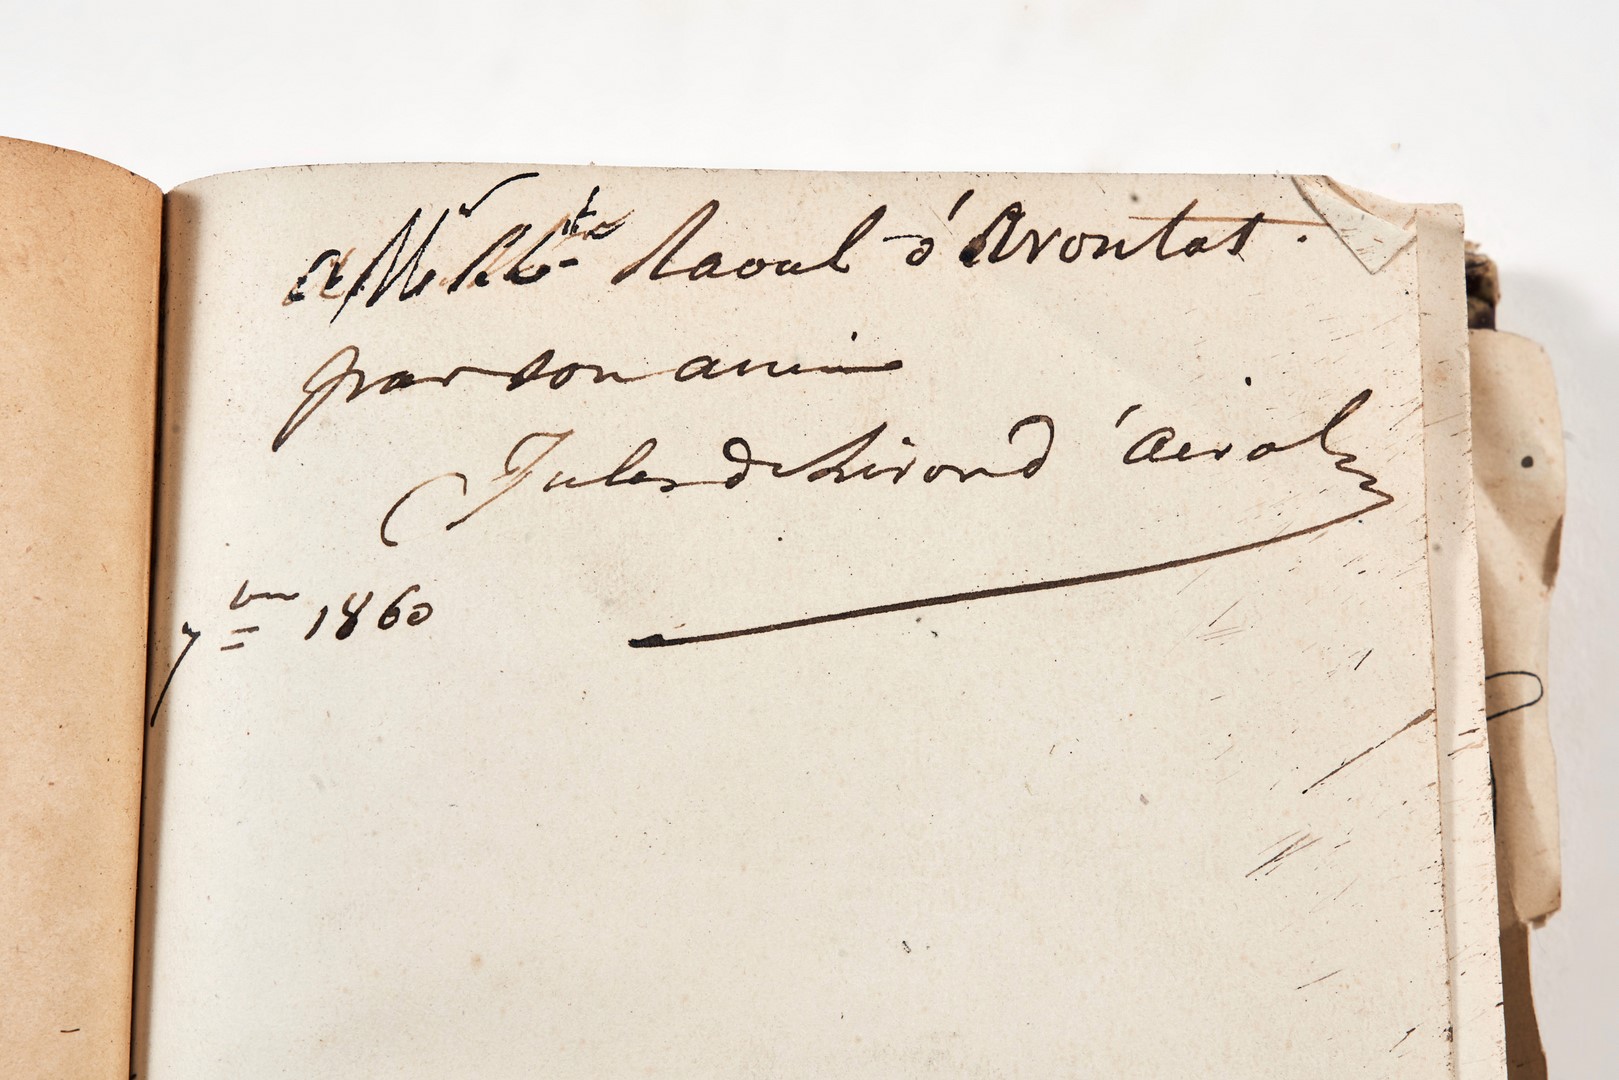 a Mr Raoul d'Avoutat.
par son ami
Jules de Livron d'Airol
7bre 1860